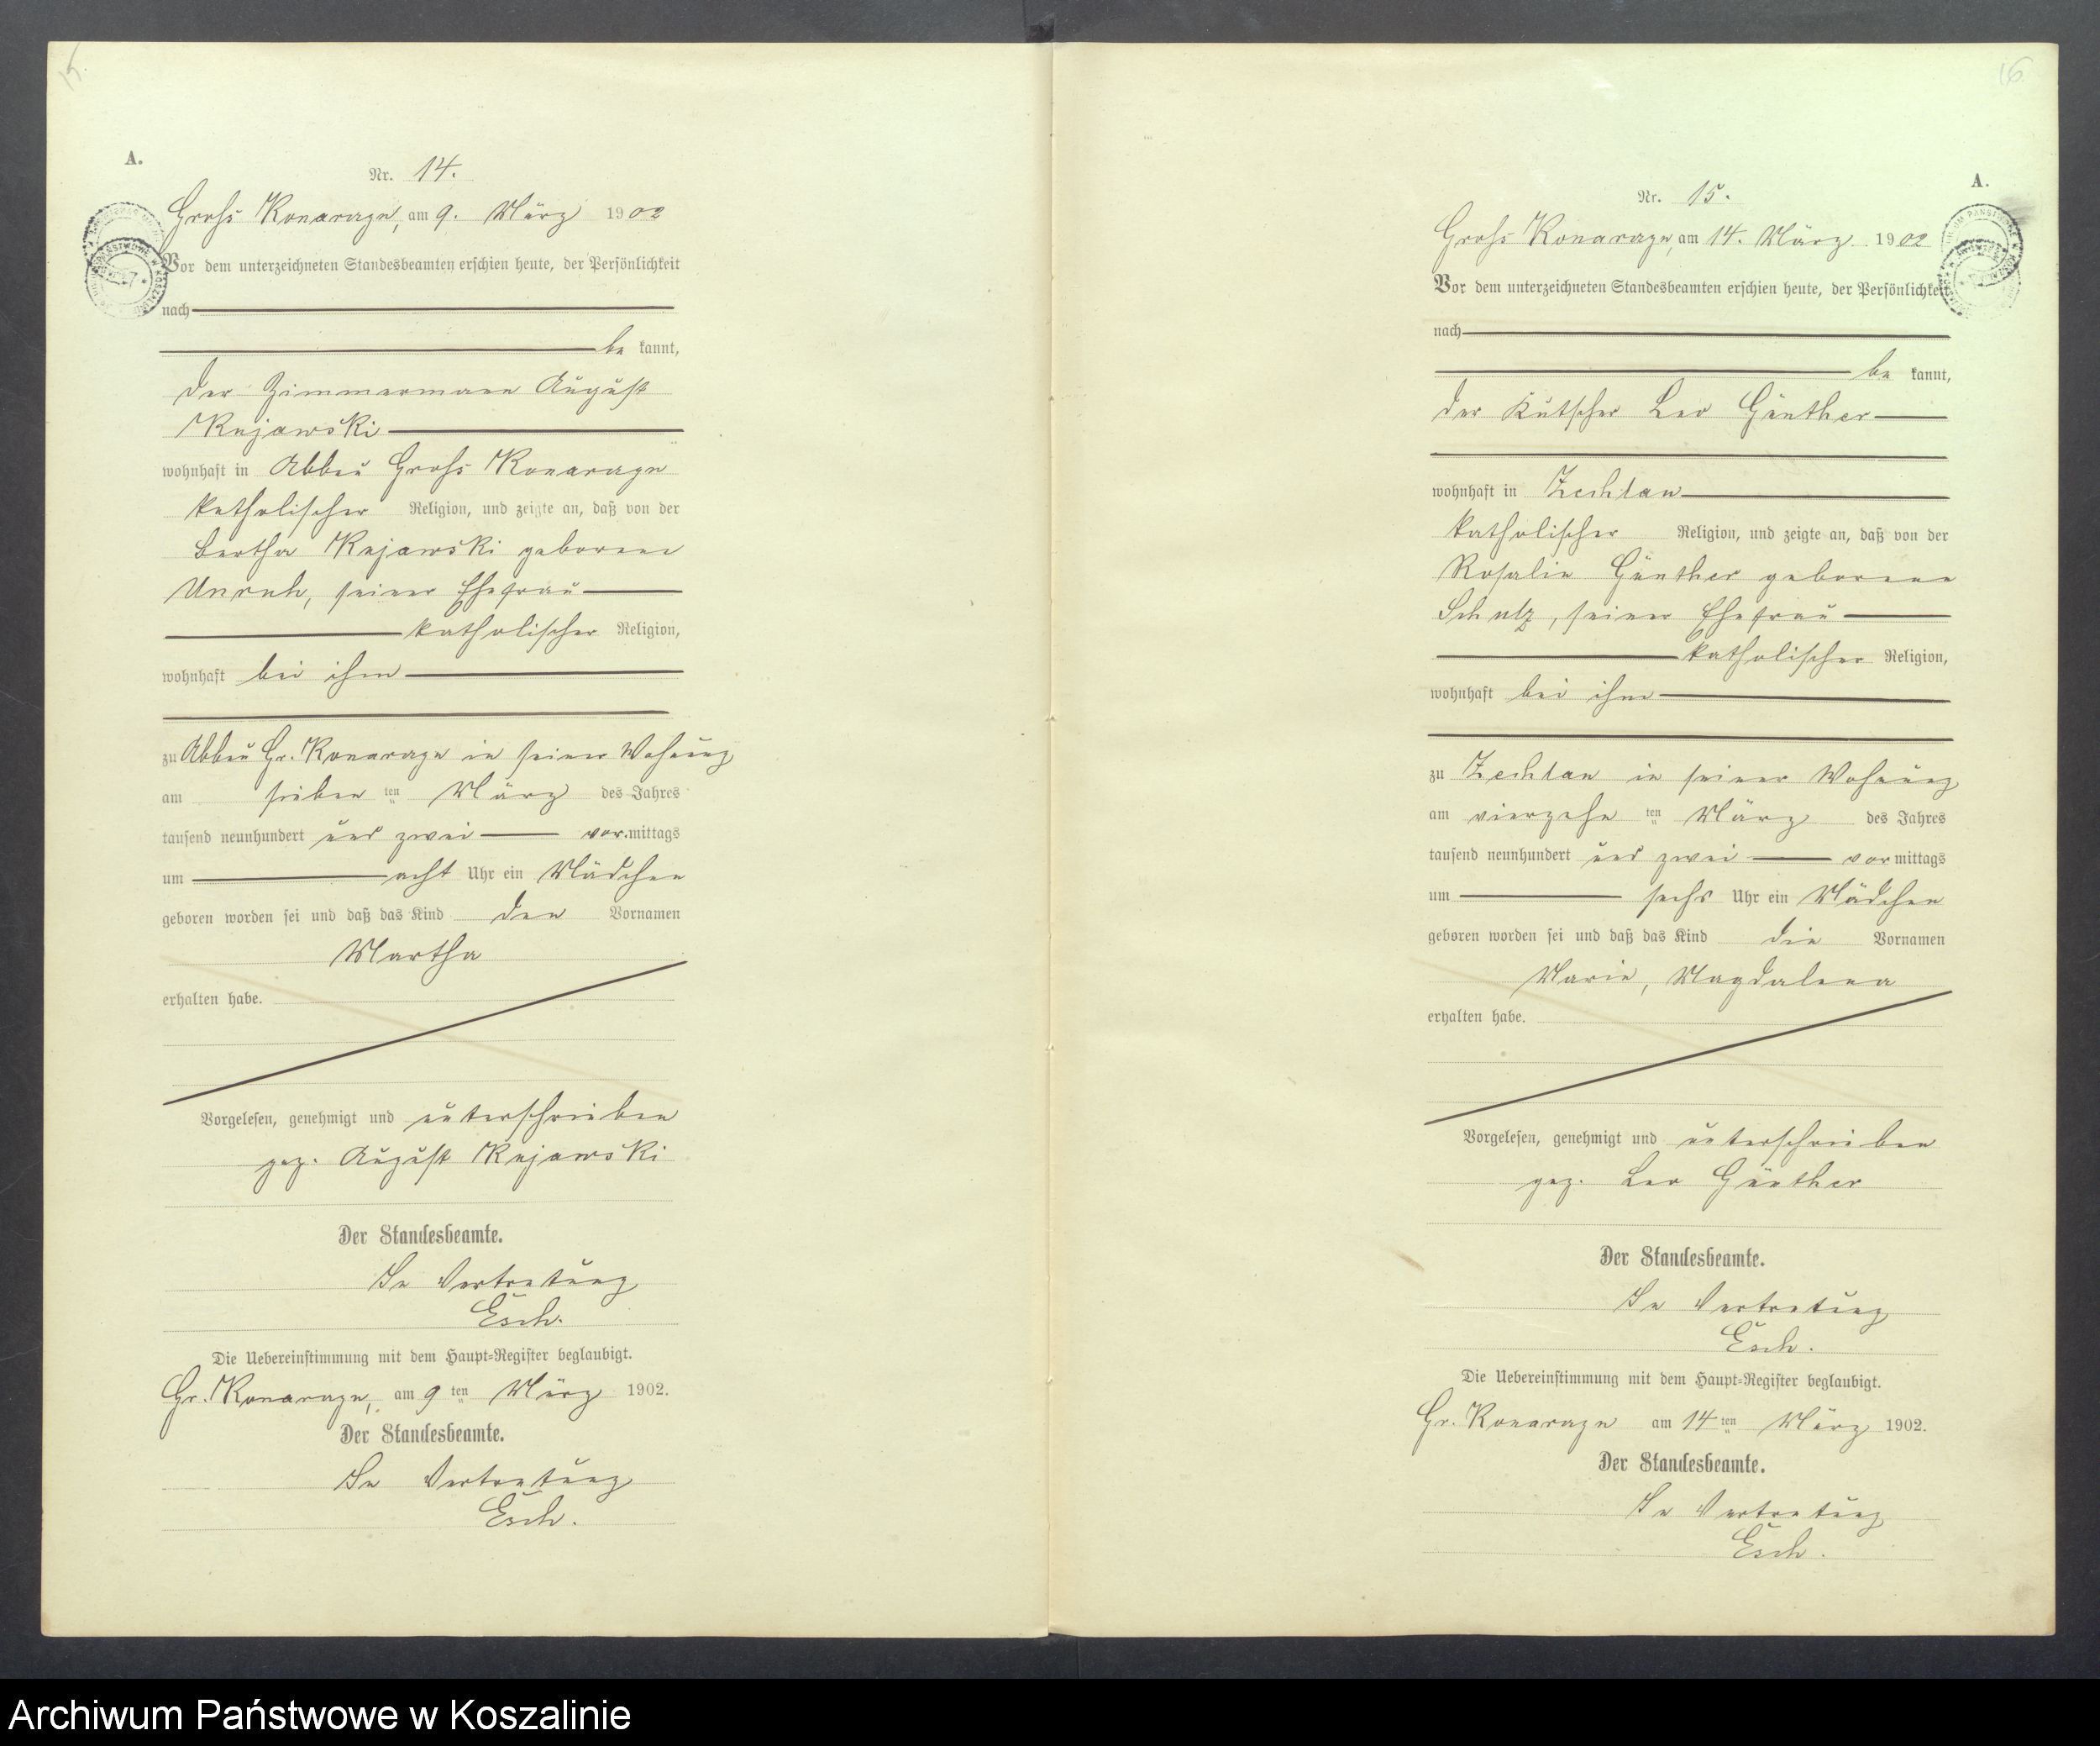 15.
A.
Nr. 14.
Gross Konarczyn, am 9. März 1902
Vor dem unterzeichneten Standesbeamten erschien heute, der Persönlichkeit
nach
be kannt,
der Zimmermann August
Kujawski
wohnhaft in Abbau Gross Konarczyn
katholischer Religion, und zeigte an, daß von der
Bertha Kujawski geborene
Unruh, seiner Ehefrau
katholischer Religion,
wohnhaft bei ihm
zu Abbau Gr. Konarczyn in seiner Wohnung
am sieben ten März des Jahres
tausend neunhundert und zwei vor mittags
um acht Uhr ein Mädchen
geboren worden sei und daß das Kind den Vornamen
Martha
erhalten habe.
Vorgelesen, genehmigt und unterschrieben
gez. August Kujawski
Der Standesbeamte.
In Vertretung
Esch.
Die Uebereinstimmung mit dem Haupt-Register beglaubigt.
Gr. Konarczyn, am 9 ten März 1902.
Der Standesbeamte.
In Vertretung
Esch.
16
A.
Nr. 15.
Gross Konarczyn, am 14. März 1902
Vor dem unterzeichneten Standesbeamten erschien heute, der Persönlichkeit
nach
be kannt,
der Kutscher Leo Günther
wohnhaft in Zechlau
katholischer Religion, und zeigte an, daß von der
Rosalie Günther geborene
Schulz, seiner Ehefrau
katholischer Religion,
wohnhaft bei ihm
zu Zechlau in seiner Wohnung
am vierzehn ten März des Jahres
tausend neunhundert und zwei vor mittags
um sechs Uhr ein Mädchen
geboren worden sei und daß das Kind die Vornamen
Marie, Magdalena
erhalten habe.
Vorgelesen, genehmigt und unterschrieben
gez. Leo Günther
Der Standesbeamte.
In Vertretung
Esch.
Die Uebereinstimmung mit dem Haupt-Register beglaubigt.
Gr. Konarczyn am 14 ten März 1902.
Der Standesbeamte.
In Vertretung
Esch.
Archiwum Państwowe w Koszalinie